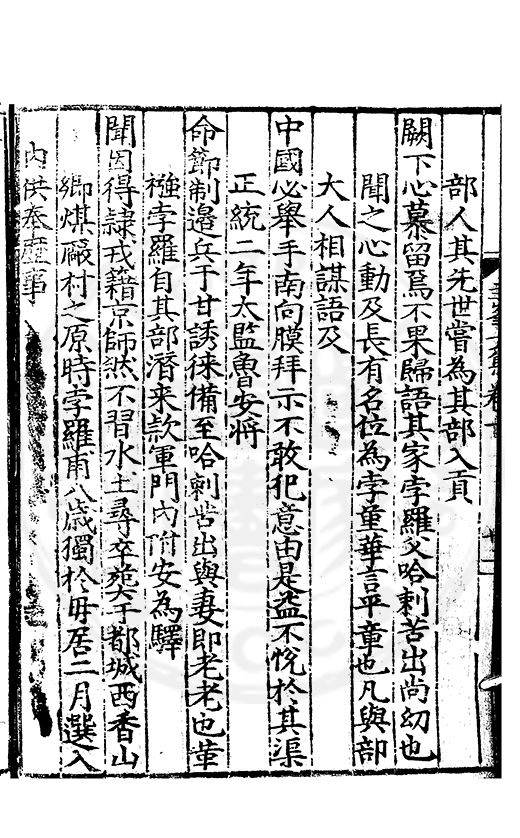 部人其先世嘗為其部入貢
闕下心慕留爲不果歸語其家孛羅父哈剌苦出尚幼也
聞之心動及長有名位為孛董華言平章也凡與部
大人相謀語及
中國必舉手南向膜拜示不敢犯意由是益不悅於其渠
正統二年太監魯安將
命節制邉兵于甘誘徠備至哈剌苦出與妻即老老也軰
襁孛羅自其部潛来欵軍門內附安為驛
聞因得隷戎籍京師然不習水土尋卒塟于都城西香山
鄉煤厰村之原時孛羅甫八歳獨於毋居二月選入
内供奉歴事